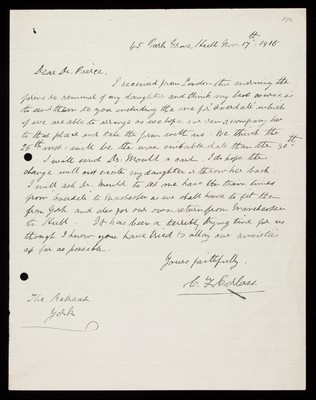 45 Park Grove, Hull Nov 17th 1910.
Dear Dr. Pierce,
I received from London this morning the
forms re removal of my daughter and think my best course is
to send them to you including the one for which
if we are able to arrange as we hope we can accompany her
to that place and take the form with us. We think the
25th inst: will be the more suitable date than the 30th.
I will send Dr. Mould a card. I do hope the
change will not excite my daughter or throw her back.
I will ask Dr. Mould to let me have the train times
from to Manchester as we shall have to get them
from York and also for our own return from Manchester
to Hull. It has been a terribly trying time for us
though I know you have tried to allay our anxieties
as far as possible.
Yours faithfully,
The Retreat
York